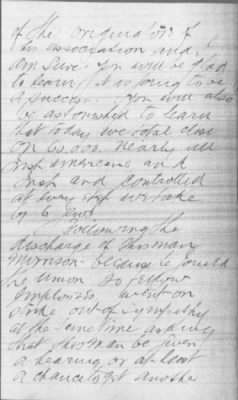 of the originators of
an association and I
am sure you will be glad
to learn it is going to be
a success. You will also
be astonished to learn
that today we total close
on 60.000. Nearly all
Irish americans and
Irish and controlled
at every step we take
by 6
Following the
discharge of Thomas
Morrison because he joined
the union 20 fellow
Employees went on
strike out of sympathy
at the same time asking
that this man be given
a hearing or at least
a chance to get another